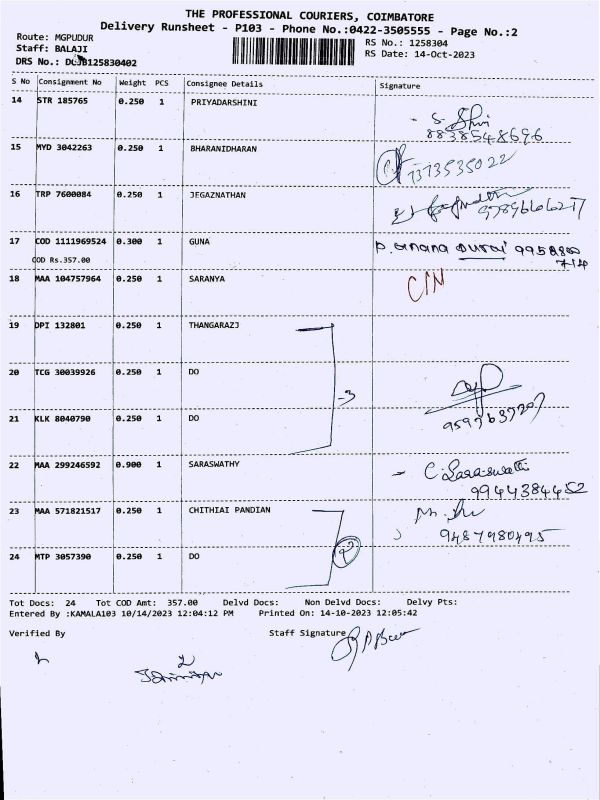 THE PROFESSIONAL COURIERS, COIMBATORE
Delivery Runsheet - P103 - Phone No.:0422-3505555 - Page No.:2
Route: MGPUDUR
RS No.: 1258304
Staff: BALAJI
RS Date: 14-Oct-2023
DRS No.: DCJB125830402
S No Consignment No Weight PCS Consignee Details Signature
14 STR 185765 0.250 1 PRIYADARSHINI
8838548696
15 MYD 3042263 0.250 1 BHARANIDHARAN
7373535022
16 TRP 7600084 0.250 1 JEGAZNATHAN
17 COD 1111969524 0.300 1 GUNA
COD Rs.357.00
18 MAA 104757964 0.250 1 SARANYA
19 DPI 132801 0.250 1 THANGARAZJ
20 TCG 30039926 0.250 1 DO
-3
21 KLK 8040790 0.250 1 DO
22 MAA 299246592 0.900 1 SARASWATHY
C. Saraswathi
9944384452
23 MAA 571821517 0.250 1 CHITHIAI PANDIAN
9487980495
24 MTP 3057390 0.250 1 DO
2
Tot Docs: 24 Tot COD Amt: 357.00 Delvd Docs: Non Delvd Docs: Delvy Pts:
Entered By :KAMALA103 10/14/2023 12:04:12 PM Printed On: 14-10-2023 12:05:42
Verified By Staff Signature